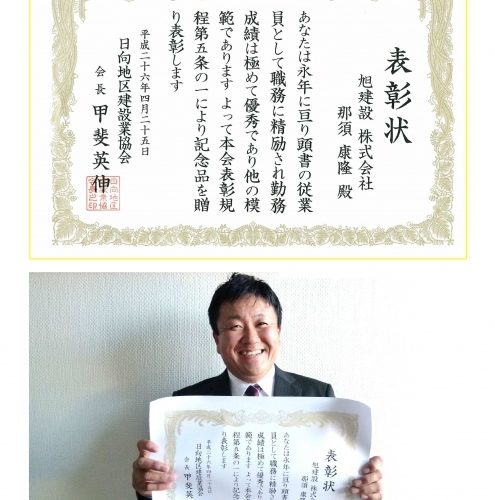 表彰状
旭建設 株式会社
那須 康隆 殿
あなたは永年に亘り頭書の従業
員として職務に精励され勤務
成績は極めて優秀であり他の模
範であります よって本会表彰規
程第五条の一により記念品を贈
り表彰します
平成二十六年四月二十五日
日向地区建設業協会
会長 甲斐英伸
表彰状
旭建設 株式
那須 康隆
あなたは永年に亘り頭
員として職務に精励さ
成績は極めて優秀であり
範であります よって本
程第五条の一により記念
り表彰します
平成二十六年四月二十
日向地区建設業協会
会長 甲斐英